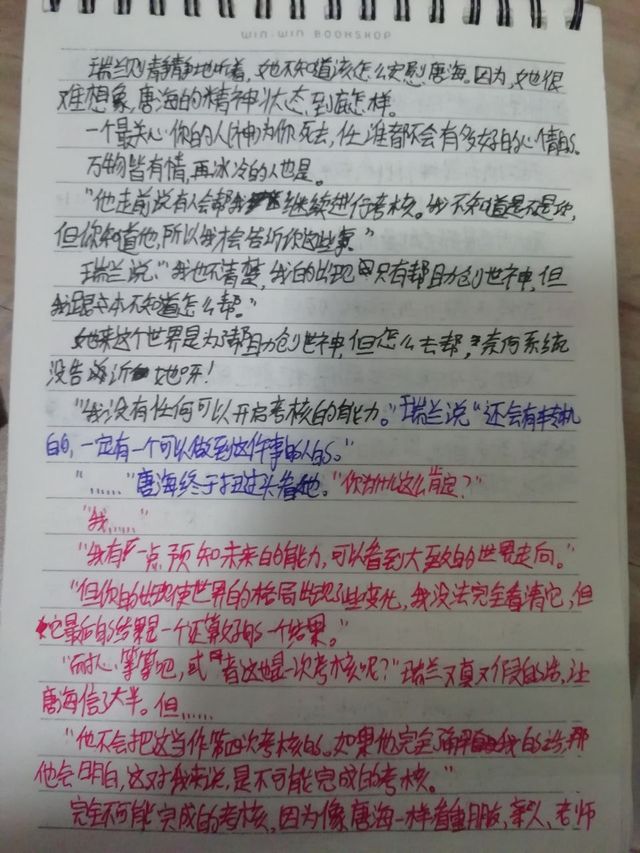 WIN·WIN BOOKSHOP
瑞兰则静静地听着，她不知道该怎么安慰唐海。因为，她很
难想象，唐海的精神状态，到底怎样。
一个最关心你的人(神)为你死去，任谁都不会有多好的心情的。
万物皆有情，再冰冷的人也是。
“他走前说有人会帮我继续进行考核。我不知道是不是你，
但你知道他，所以我才会告诉你这些事。”
瑞兰说：“我也不清楚，我的出现只有帮助创世神，但
我跟本不知道怎么帮。”
她来这个世界是为了帮助创世神，但怎么去帮，奈何系统
没告诉她呀！
“我没有任何可以开启考核的能力。”瑞兰说“还会有转机
的，一定有一个可以做到这件事的人的。”
“……”唐海终于扭过头看她。“你为什么这么肯定？”
“我……”
“我有一点预知未来的能力，可以看到大致的世界走向。”
“但你的出现使世界的格局出现了些变化，我没法完全看清它，但
它最后的结果是一个还算好的一个结果。”
“耐心等等吧，或者这也是一次考核呢？”瑞兰又真又假的话，让
唐海信了大半。但……
“他不会把这当作第四次考核的。如果他完全了解我的话，那
他会明白，这对我来说，是不可能完成的考核。”
完全不可能完成的考核，因为像唐海一样看重朋友、亲人、老师